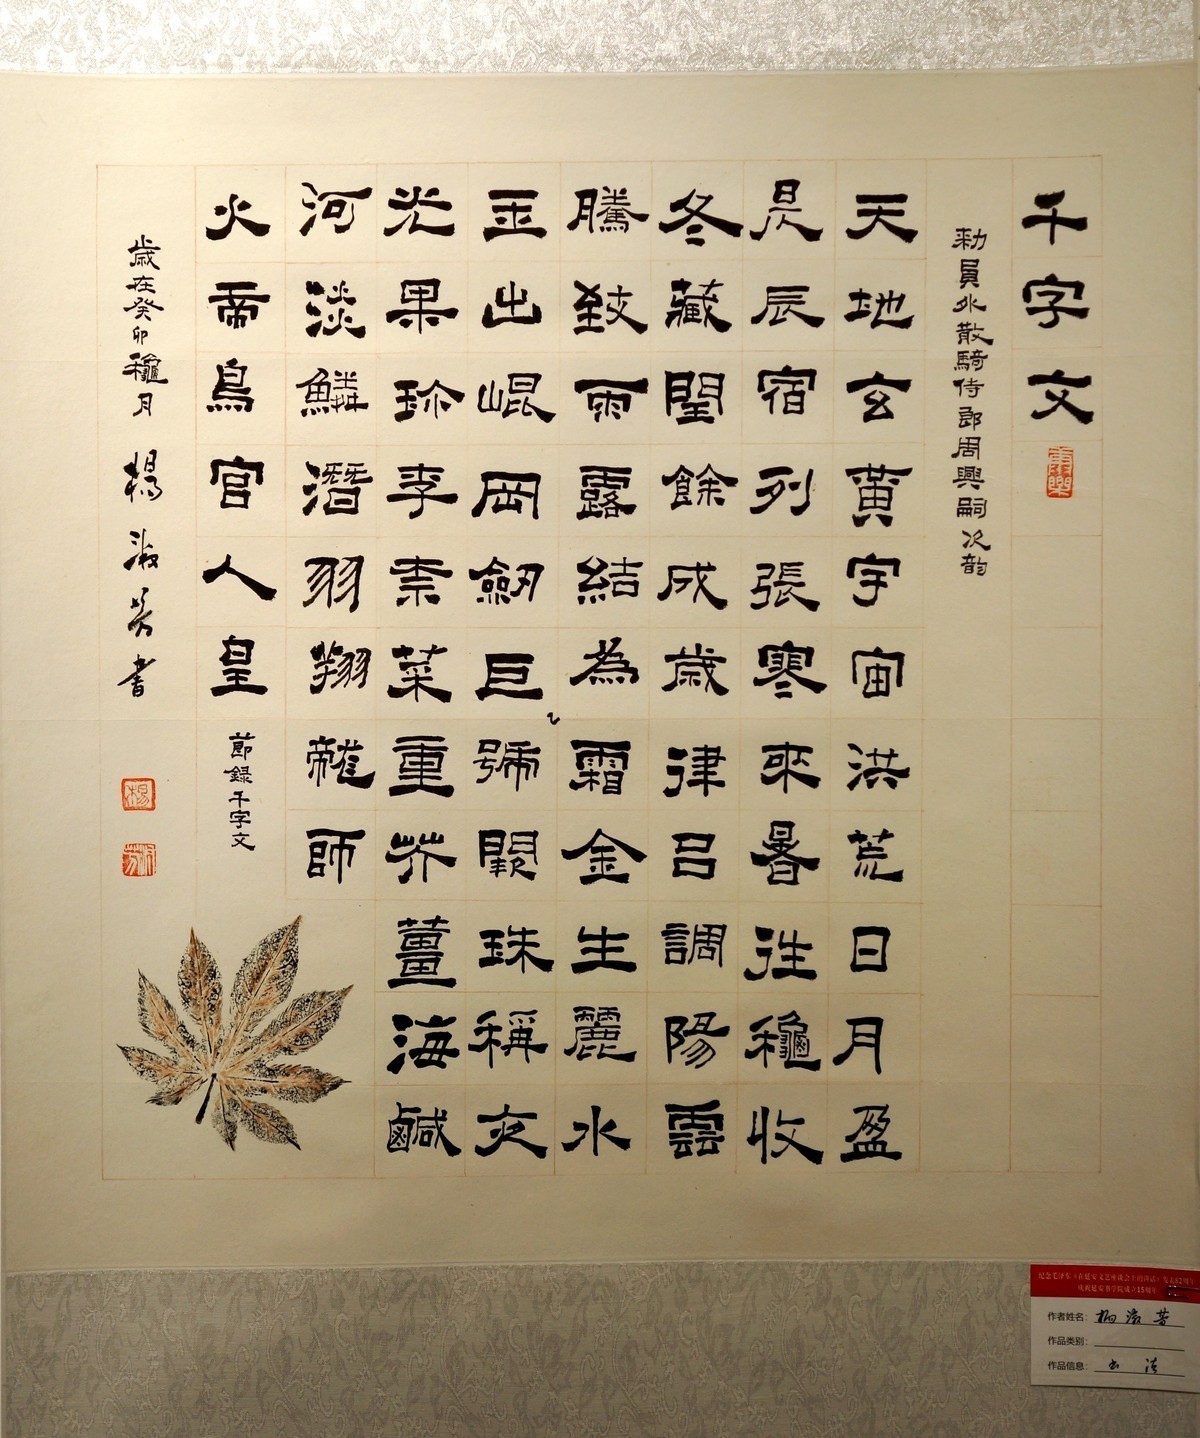 千字文
勅員外散騎侍郎周興嗣次韵
天地玄黃宇宙洪荒日月盈
昃辰宿列張寒來暑往龝收
冬藏閏餘成歲律呂調陽雲
騰致雨露結為霜金生麗水
玉出崐岡劒巨號闕珠稱夜
光果珍李柰菜重芥薑海鹹
河淡鱗潛羽翔龍師
火帝鳥官人皇
節錄千字文
歲在癸卯龝月 楊淑芳書
纪念毛泽东《在延安文艺座谈会上的讲话》发表82周年
庆祝延安书学院成立15周年
作者姓名：杨淑芳
作品类别：
作品信息：书法